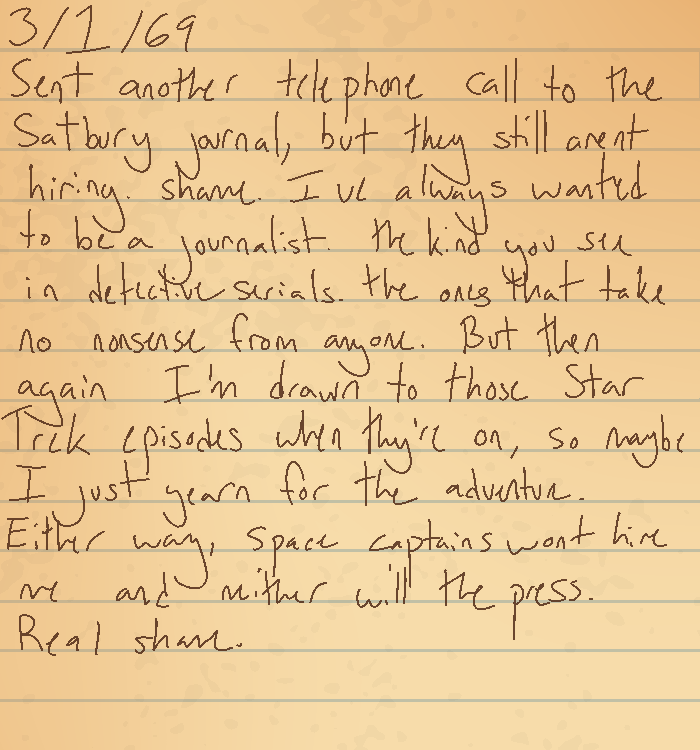 3/1/69
Sent another telephone call to the
Satbury journal, but they still arent
hiring. shame. I've always wanted
to be a journalist. The kind you see
in detective serials. the ones that take
no nonsense from anyone. But then
again I'm drawn to those Star
Trek episodes when they're on, so maybe
I just yearn for the adventure.
Either way, space captains wont hire
me and neither will the press.
Real shame.